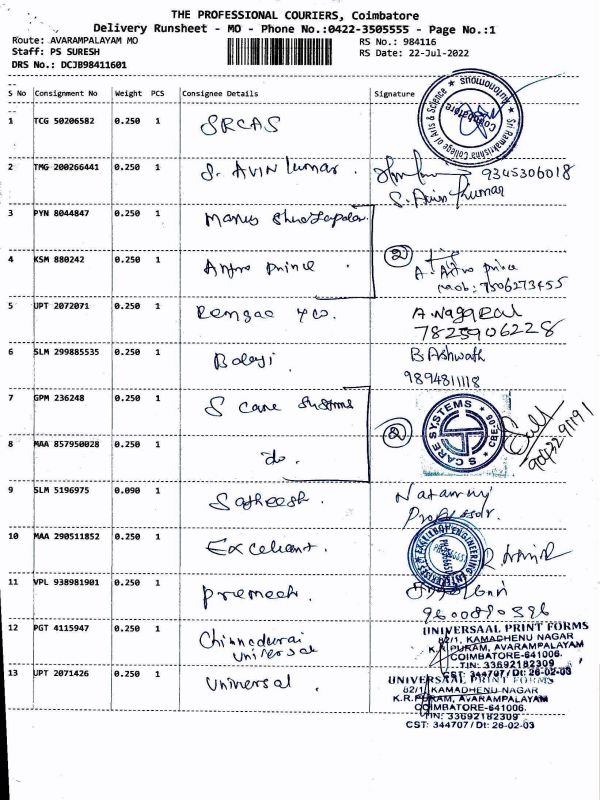 THE PROFESSIONAL COURIERS, Coimbatore
Delivery Runsheet - MO - Phone No.:0422-3505555 - Page No.:1
Route: AVARAMPALAYAM MO
RS No.: 984116
Staff: PS SURESH
RS Date: 22-Jul-2022
DRS No.: DCJB98411601
S No Consignment No Weight PCS Consignee Details Signature
Sri Ramakrishna College of Arts & Science
Autonomous
Coimbatore
1 TCG 50206582 0.250 1 SRCAS
2 TMG 200266441 0.250 1 S. AVIN Kumar. 9345306018
S. Avin Kumar
3 PYN 8044847 0.250 1
4 KSM 880242 0.250 1 Antro prince . 2 A. Antro prince
mob: 7506273455
5 UPT 2072071 0.250 1 A. Nagaraj
7825906228
6 SLM 299885535 0.250 1 Balaji. B Ashwath
9894811118
7 GPM 236248 0.250 1 S care systems
S CARE SYSTEMS
CBE
2
9043291191
8 MAA 857950028 0.250 1 do.
9 SLM 5196975 0.090 1 Satheesh.
10 MAA 290511852 0.250 1 Excellent.
11 VPL 938981901 0.250 1 Premech.
9600890396
12 PGT 4115947 0.250 1 Chinnadurai
universal
UNIVERSAAL PRINT FORMS
82/1, KAMADHENU NAGAR
K.R.PURAM, AVARAMPALAYAM
COIMBATORE-641006.
TIN: 33692182309
CST: 344707/Dt: 26-02-03
13 UPT 2071426 0.250 1 Universal .
UNIVERSAAL PRINT FORMS
82/1, KAMADHENU NAGAR
K.R.PURAM, AVARAMPALAYAM
COIMBATORE-641006.
TIN: 33692182309
CST: 344707/Dt: 26-02-03